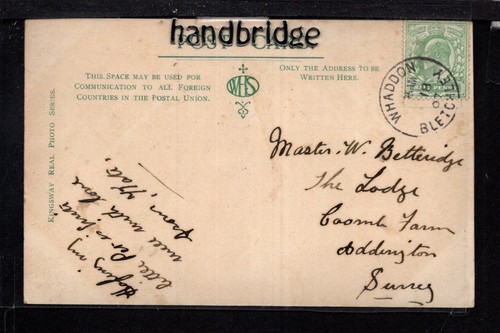 handbridge
POST CARD
THIS SPACE MAY BE USED FOR
COMMUNICATION TO ALL FOREIGN
COUNTRIES IN THE POSTAL UNION.
WHS
ONLY THE ADDRESS TO BE
WRITTEN HERE.
WHADDON
BLETCHLEY
KINGSWAY REAL PHOTO SERIES.
Hoping my
little Per
well with love
from, Nata,
Master. W. Betteridge
The Lodge
Coomb Farm
Addington
Surrey